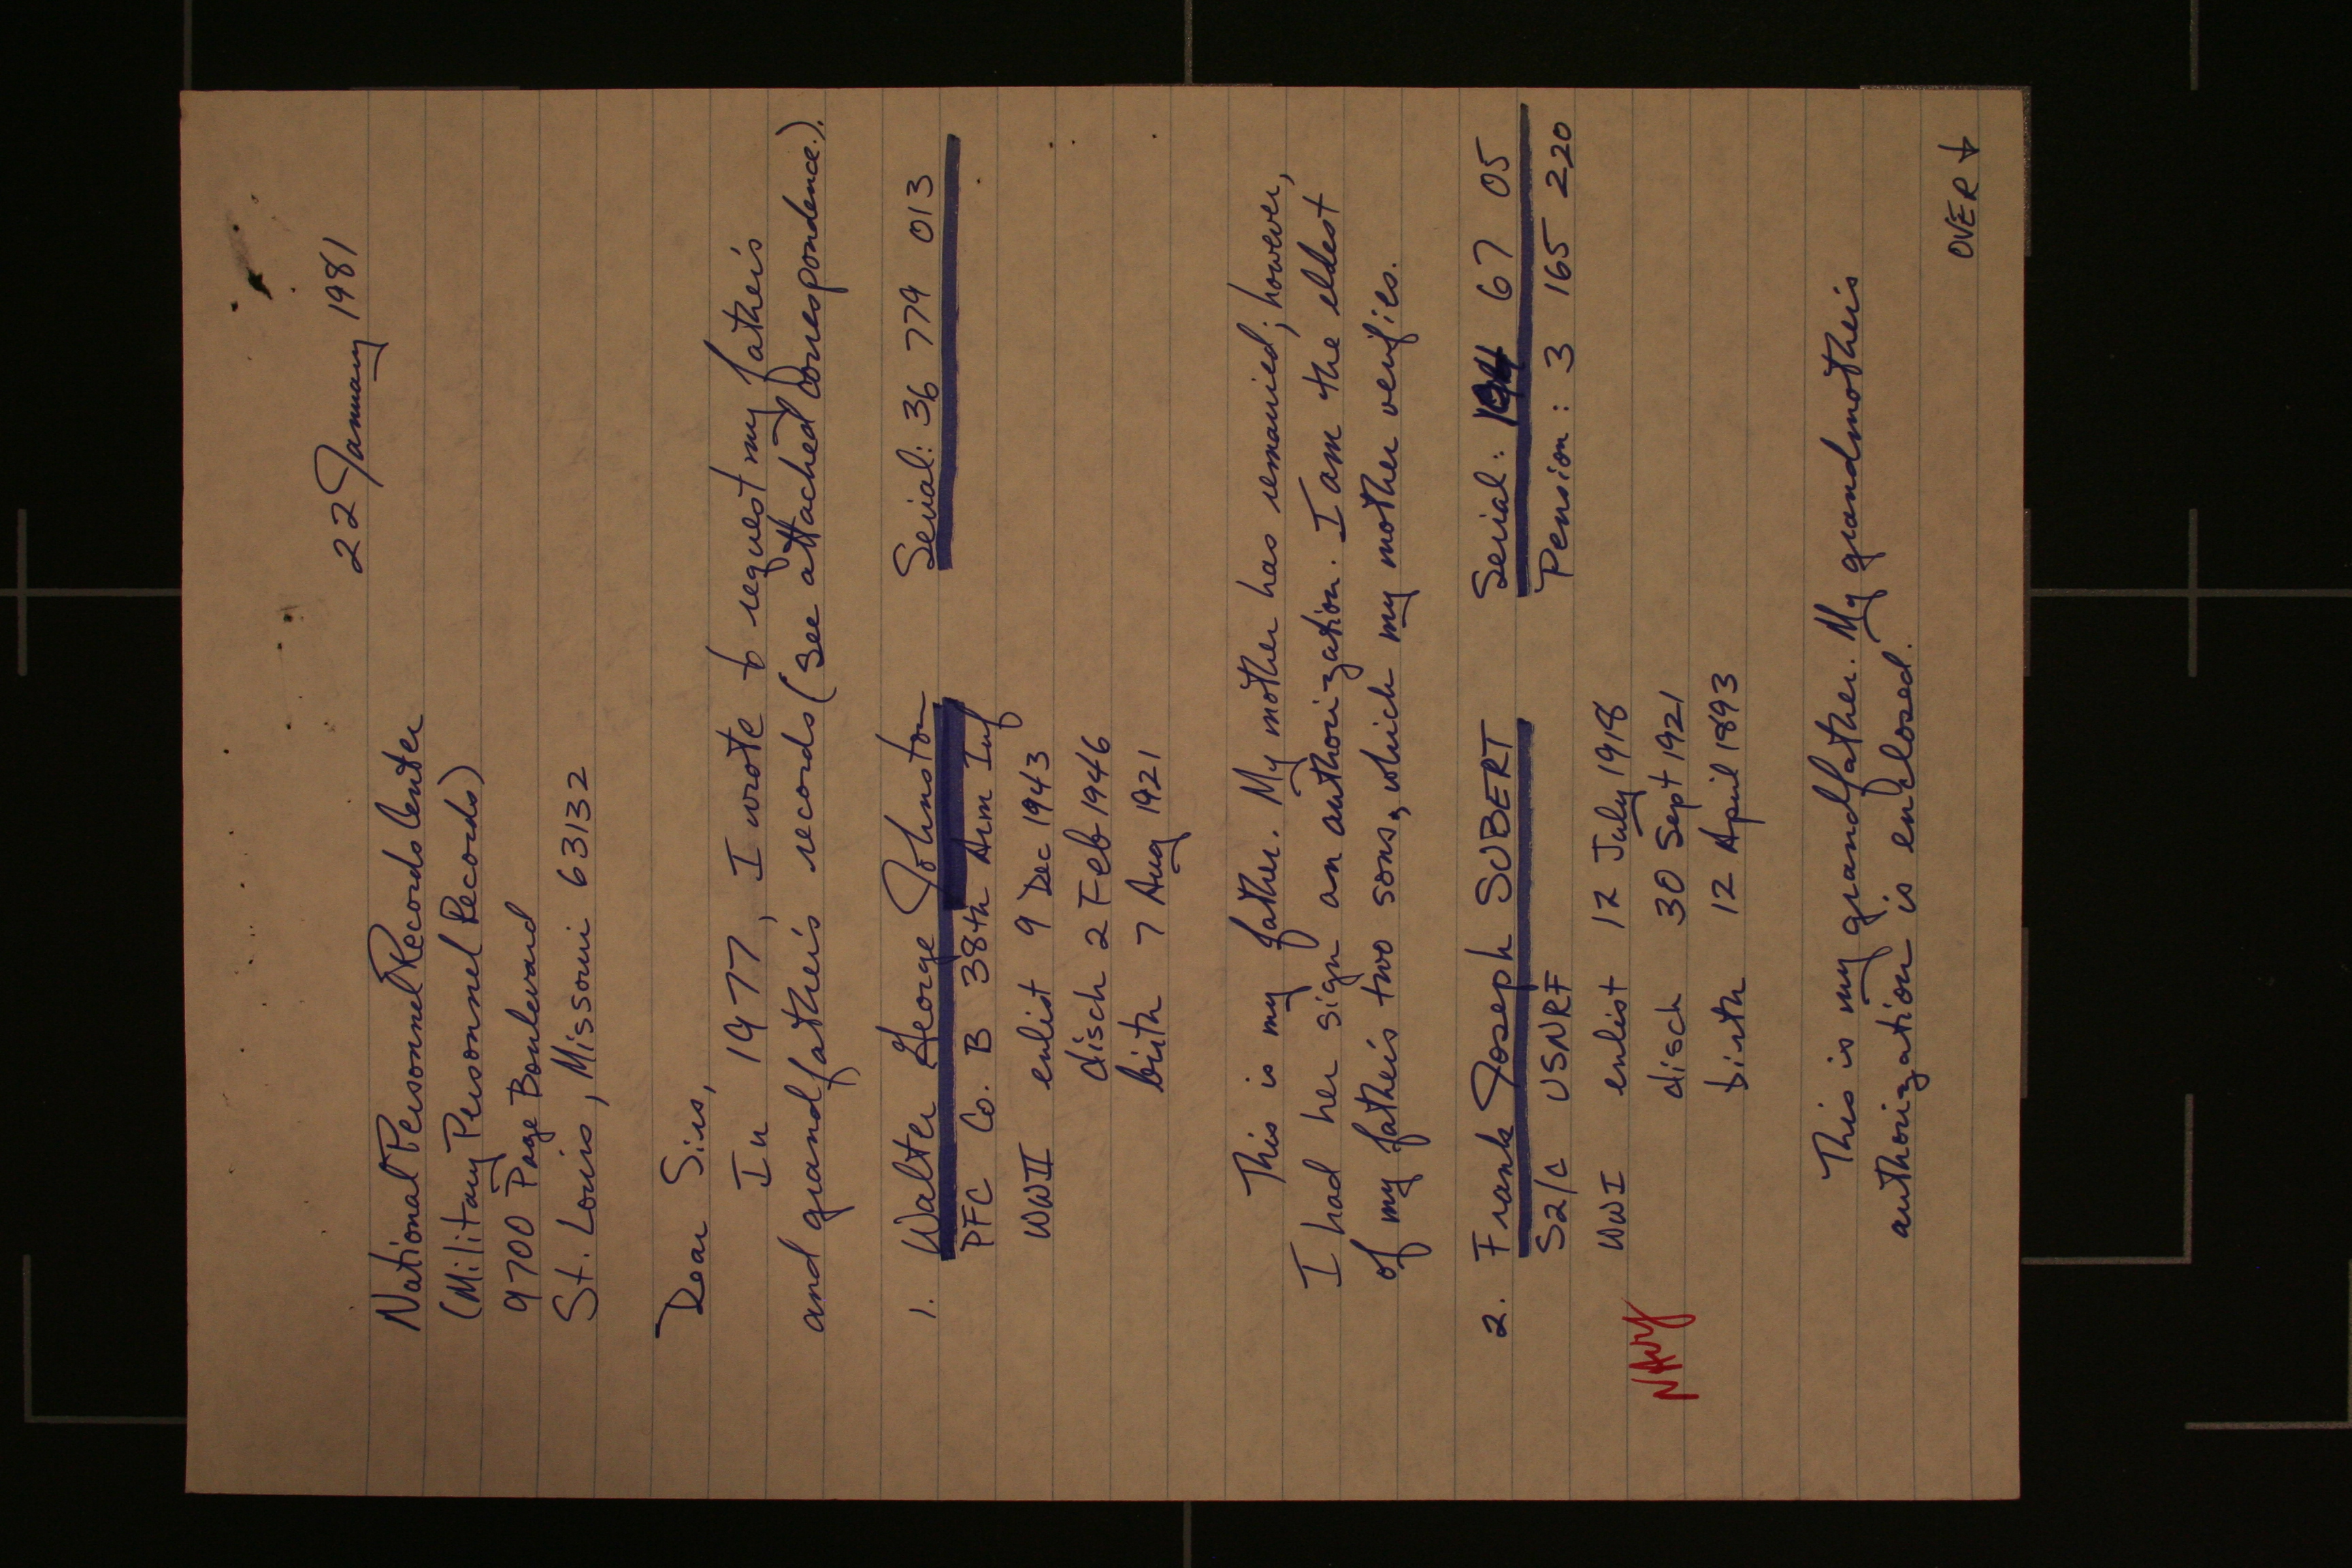 22 January 1981
National Personnel Records Center
(Military Personnel Records)
9700 Page Boulevard
St. Louis, Missouri 63132
Dear Sirs,
In 1977, I wrote to request my father's
and grandfather's records (see attached correspondence).
1. Walter George Johnston Serial: 36 779 013
PFC Co. B 38th Arm Inf
WWII enlist 9 Dec 1943
disch 2 Feb 1946
birth 7 Aug 1921
This is my father. My mother has remarried; however,
I had her sign an authorization. I am the eldest
of my father's two sons, which my mother verifies.
2. Frank Joseph SUBERT Serial: 194 67 05
S2/C USNRF Pension: 3 165 220
WWI enlist 12 July 1918
NAVY
disch 30 Sept 1921
birth 12 April 1893
This is my grandfather. My grandmother's
authorization is enclosed.
OVER ↓